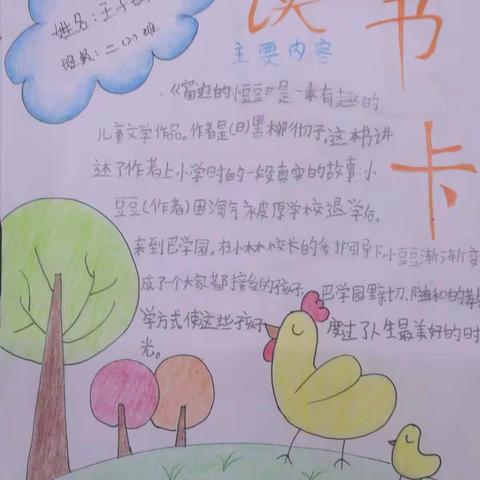 读书卡
姓名:王子
班级:二(2)班
主要内容
《窗边的小豆豆》是一本有趣的
儿童文学作品。作者是(日)黑柳彻子,这本书讲
述了作者上小学时的一段真实的故事:小
豆豆(作者)因淘气被原学校退学后,
来到巴学园。在小林校长的爱护引导下,小豆豆渐渐变
成了个大家都接受的孩子,巴学园里亲切、随和的教
学方式使这些孩子 度过了人生最美好的时
光。